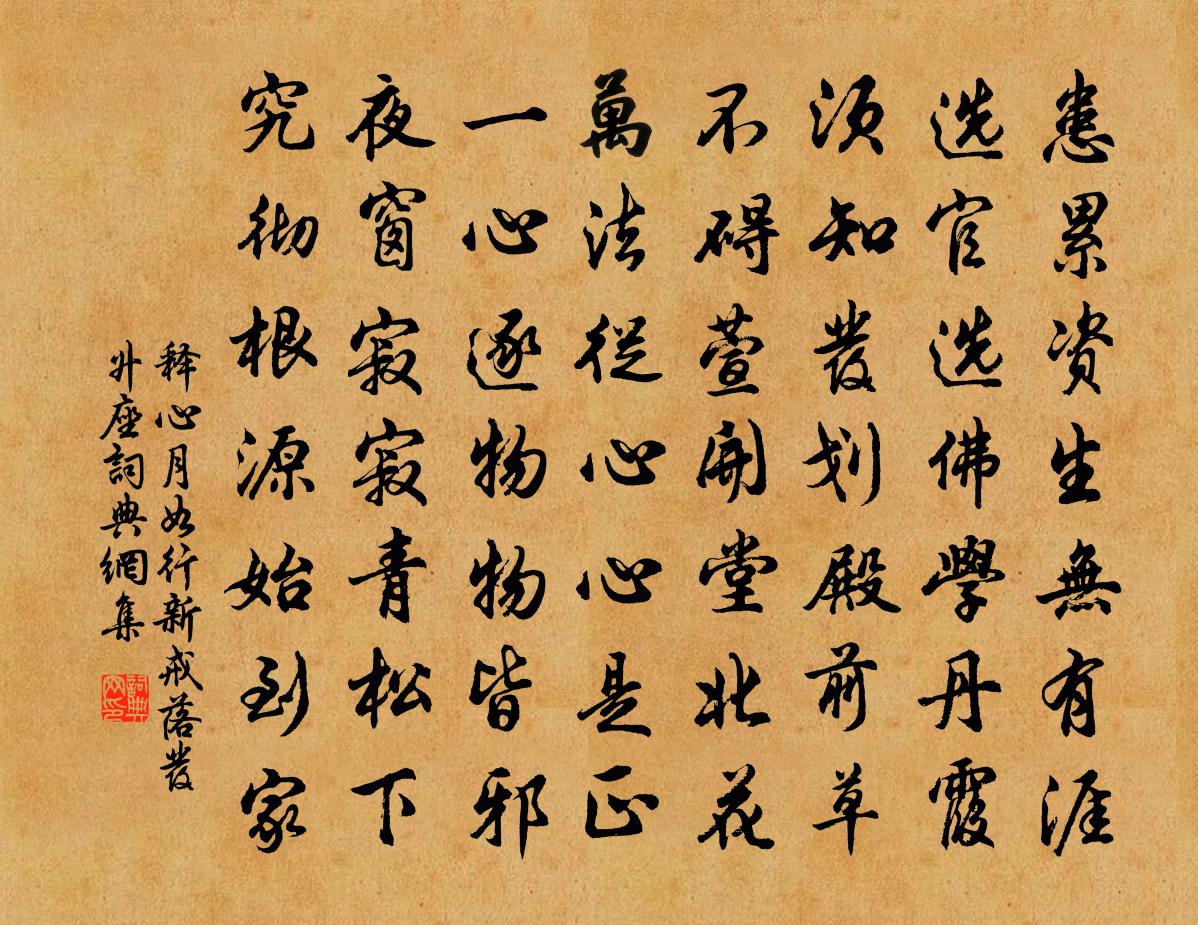 患累资生無有涯
选官选佛學丹霞
须知發划殿前草
不碍萱開堂北花
萬法從心心是正
一心逐物物皆邪
夜窗寂寂青松下
究彻根源始到家
释心月如行新戒落發
升座詞典網集
詞典網印